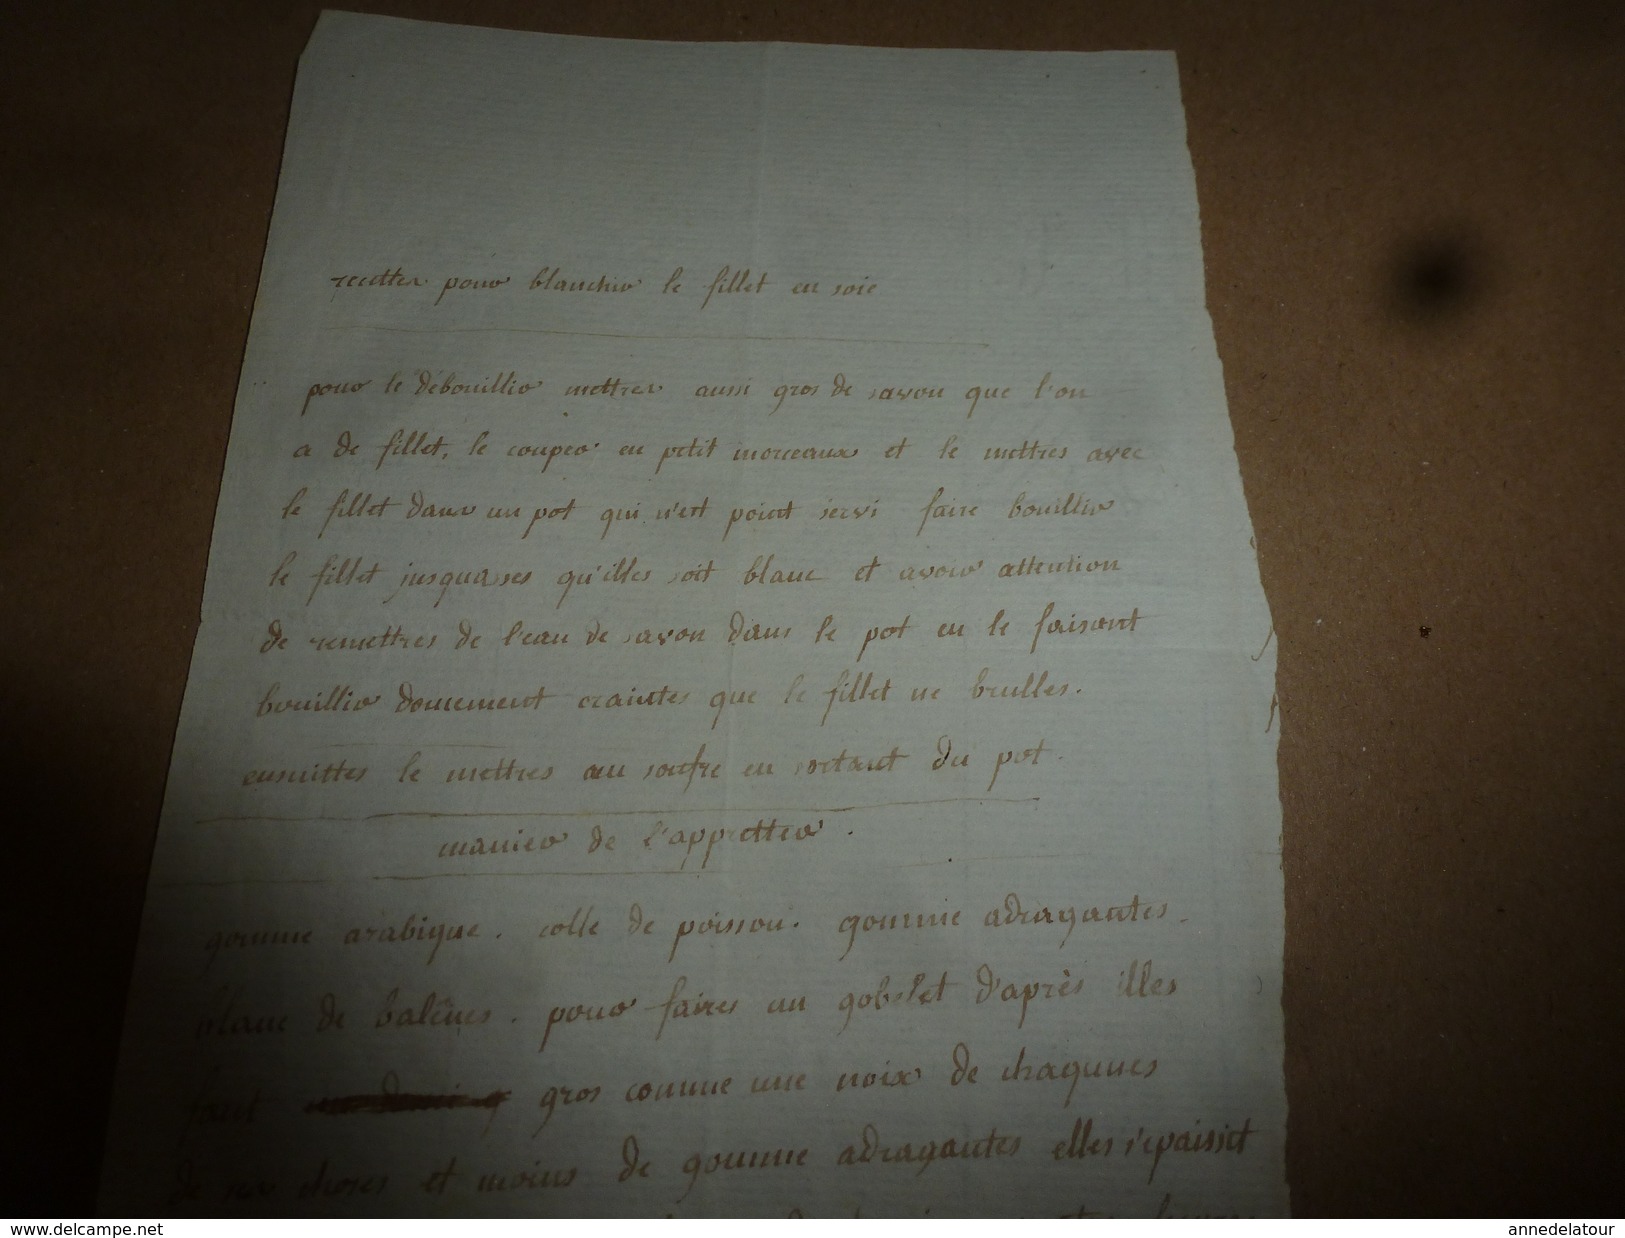 recettes pour blanchir le fillet en soie
pour le débouillir mettres aussi gros de savon que l'on
a de fillet, le couper en petit morceaux et le mettres avec
le fillet dans un pot qui n'est point servi faire bouillir
le fillet jusquases qu'illes soit blanc et avoir attention
de remettres de l'eau de savon dans le pot en le faisant
bouillir doucement craintes que le fillet ne brulles.
ensuittes le mettres au soufre en sortant du pot.
manier de l'appretter.
gomme arabique. colle de poisson. gomme adragantes.
blanc de balênes. pour faires un gobelet d'après illes
faut gros comme une noix de chaqunes
de ses choses et moins de gomme adragantes elles s'epaissit
www.delcampe.net
annedelatour